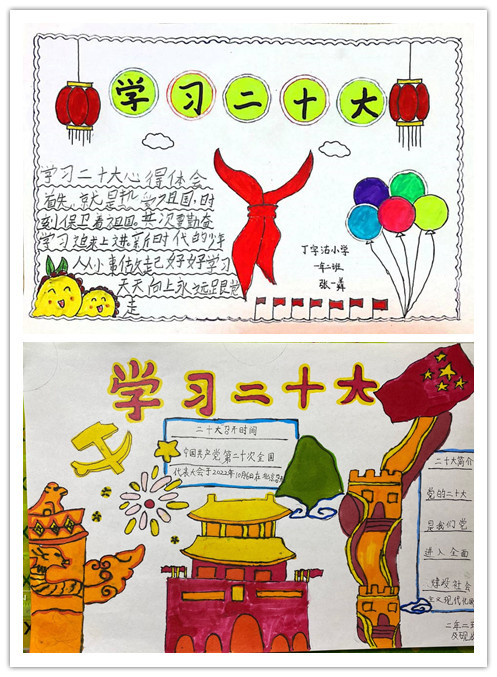 学习二十大
学习二十大心得体会
首先,就是热爱祖国,时
刻保卫着祖国。其次要勤奋
学习追求上进新时代的少年
从小事做起好好学习
天天向上永远跟党
走
丁字沽小学
一年二班
学习二十大
二十大召开时间
中国共产党第二十次全国
代表大会于2022年10月
二十大简介
党的二十大
是我们党
进入全面
建设社会
主义现代化
二年二班